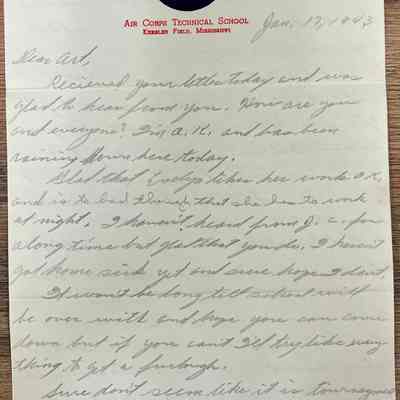 Air Corps Technical School
Keesler Field, Mississippi
Jan. 17, 1943
Dear Art,
Recieved your letter today and was
glad to hear from you. How are you
and everyone? I'm O.K. and has been
raining here today.
Glad that Evelyn likes her work O.K.
and is to bad though that she has to work
at night. I haven't heard from J. C. for
a long time but glad that you do. I haven't
got home sick yet and sure hope I don't.
It won't be long till school will
be over with and hope you can come
down but if you can't I'll try like every
thing to get a furlough.
Sure don't seem like it is